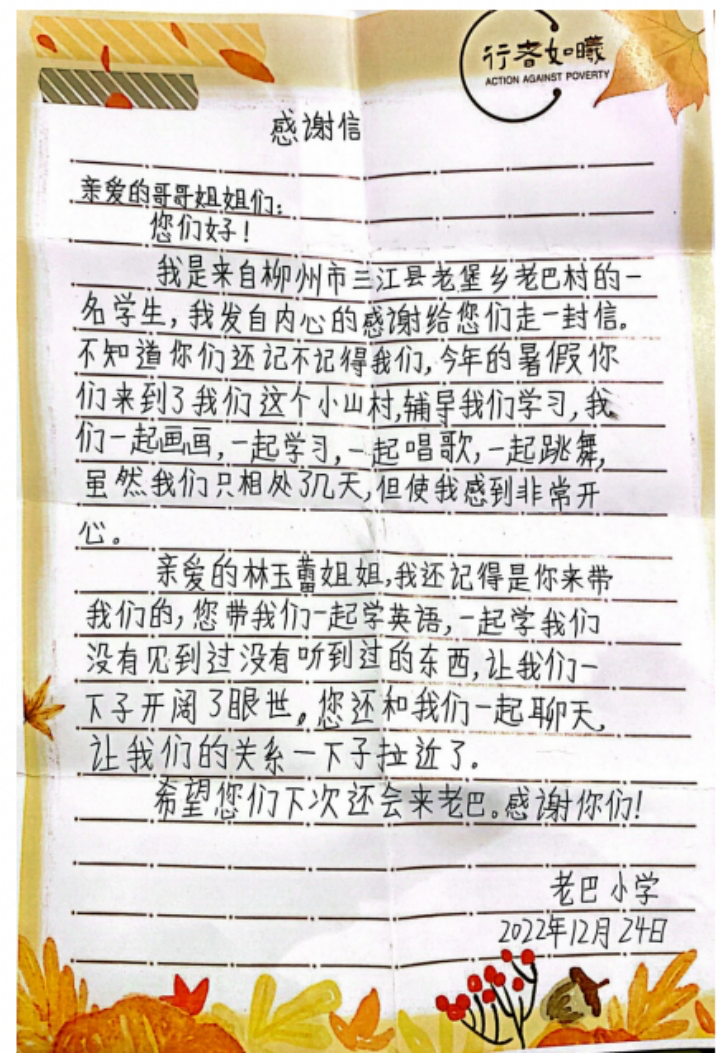 行者如曦
ACTION AGAINST POVERTY
感谢信
亲爱的哥哥姐姐们：
您们好！
我是来自柳州市三江县老堡乡老巴村的一
名学生，我发自内心的感谢给您们走一封信。
不知道你们还记不记得我们，今年的暑假你
们来到了我们这个小山村，辅导我们学习，我
们一起画画，一起学习，一起唱歌，一起跳舞，
虽然我们只相处了几天，但使我感到非常开
心。
亲爱的林玉蕾姐姐，我还记得是你来带
我们的，您带我们一起学英语，一起学我们
没有见到过没有听到过的东西，让我们一
下子开阔了眼世。您还和我们一起聊天，
让我们的关系一下子拉近了。
希望您们下次还会来老巴。感谢你们！
老巴小学
2022年12月24日